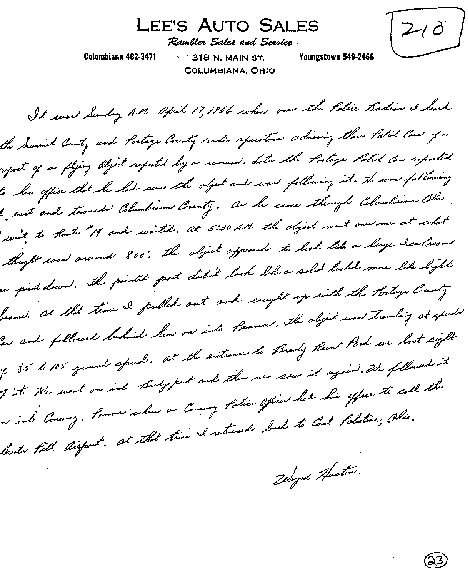 LEE'S AUTO SALES
Rambler Sales and Service
Columbiana 482-3471
318 N. MAIN ST.
Youngstown 549-2666
COLUMBIANA, OHIO
210
It was Sunday A.M. April 17, 1966 when over the Police Radio I heard
the Summit County and Portage County radio operators advising their Patrol Cars of a
report of a flying object reported by a woman. Later the Portage Patrol Car reported
to his office that he had seen the object and was following it. He was following
it east and towards Columbiana County. As he came though Columbiana Ohio
went to Route #14 and waited. At 5:20 AM the object went over me at what
thought was around 800'. The object appeared to look like a large Ice Cream
pointed down. The pointed part didn't look like a solid but more like light
beams. At that time I pulled out and caught up with the Portage County
Car and followed behind him on into Penna. The object was traveling at speeds
85 to 105 ground speed. At the entrance to Brady Run Park we lost sight
of it. We went on into Bridgewater and then we saw it again. We followed it
on into Conway, Penna where a Conway Police Officer had his office to call the
Pitt Airport. At that time I returned back to East Palestine, Ohio.
Wayne Huston
23